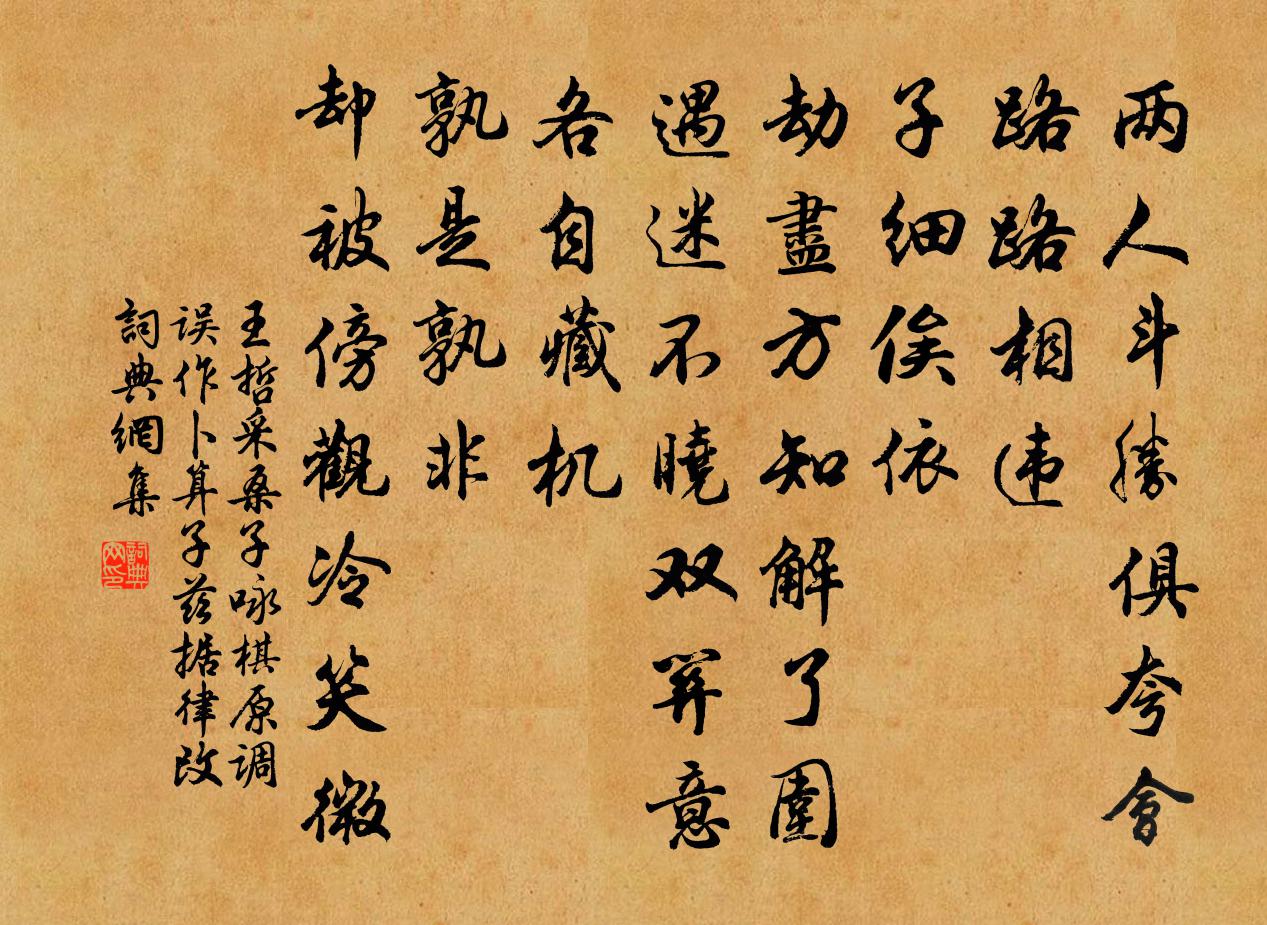 两人斗勝俱夸會
路路相违
子细俟依
劫盡方知解了圍
遇迷不曉双關意
各自藏机
孰是孰非
却被傍觀冷笑微
王哲采桑子咏棋原调
误作卜算子兹据律改
詞典網集
詞典网印